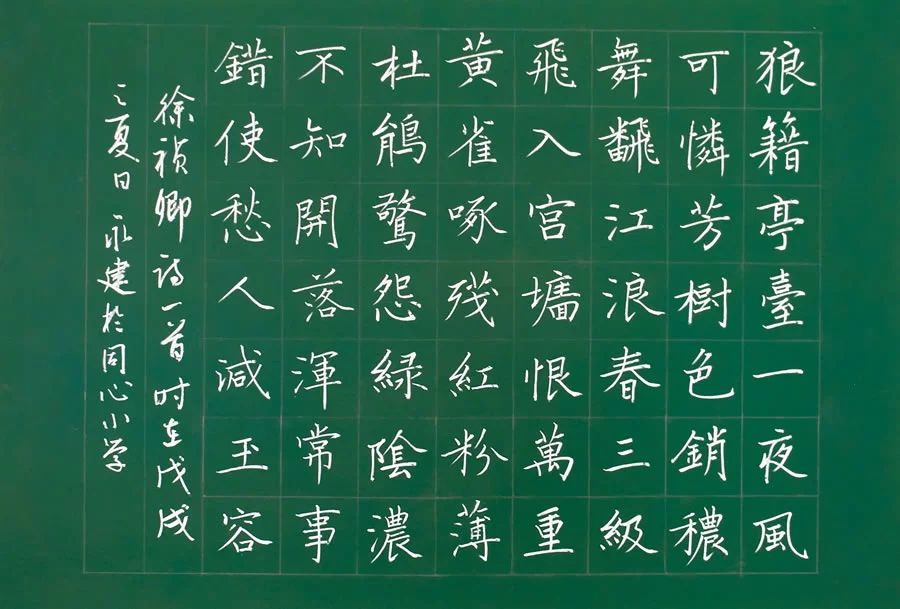 狼籍亭臺一夜風
可憐芳樹色銷穠
舞飜江浪春三級
飛入宮墻恨萬重
黃雀啄殘紅粉薄
杜鵑驚怨綠陰濃
不知開落渾常事
錯使愁人減玉容
徐祯卿诗一首时在戊戌
之夏日永建於同心小学